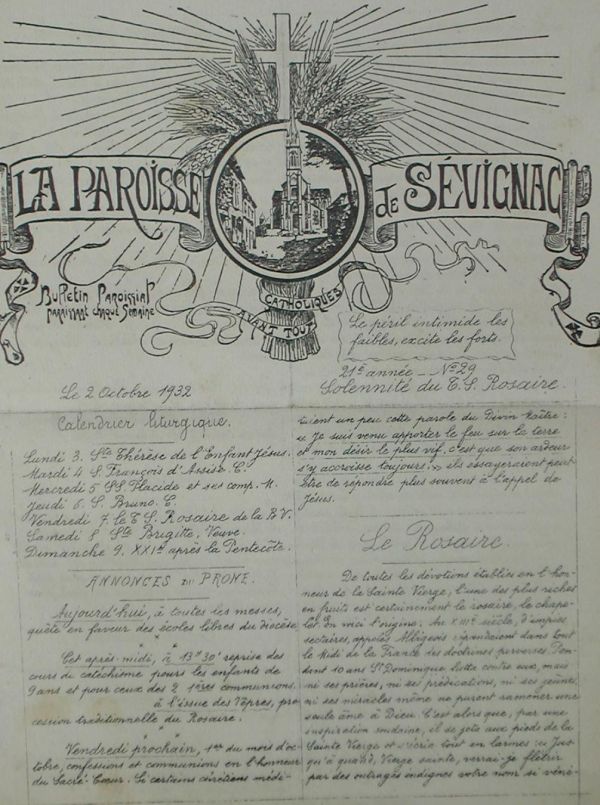 LA PAROISSE
de SÉVIGNAC
Bulletin Paroissial
paraissant chaque Semaine
CATHOLIQUES
AVANT TOUT
Le péril intimide les
faibles, excite les forts.
21e année _ No 29
Le 2 Octobre 1932
Solennité du T. S. Rosaire.
Calendrier liturgique.
Lundi 3. Ste Thérèse de l'Enfant Jésus.
Mardi 4 S. François d'Assise C.
Mercredi 5 SS. Placide et ses comp. M.
Jeudi 6. S. Bruno. C.
Vendredi 7. le T. S. Rosaire de la B.V.
Samedi 8 Ste Brigitte, Veuve.
Dimanche 9. XXIe après la Pentecôte.
ANNONCES DU PRONE.
Aujourd'hui, à toutes les messes,
quête en faveur des écoles libres du diocèse
Cet après-midi, à 13h30' reprise des
cours de catéchisme pour les enfants de
9 ans et pour ceux des 2 1ères communions.
à l'issue des Vêpres, pro-
cession traditionnelle du Rosaire.
Vendredi prochain, 1er du mois d'oc-
tobre, confessions et communions en l'honneur
du Sacré-Cœur. Si certains chrétiens médi-
taient un peu cette parole du Divin Maître:
"Je suis venu apporter le feu sur la terre
et mon désir le plus vif, c'est que son ardeur
s'y accroisse toujours." ils essayeraient peut
être de répondre plus souvent à l'appel de
Jésus.
Le Rosaire.
De toutes les dévotions établies en l'hon-
neur de la Sainte Vierge, l'une des plus riches
en fruits est certainement le rosaire, le chape-
let. En voici l'origine: Au XIIIe siècle, d'impies
sectaires, appelés Albigeois répandaient dans tout
le Midi de la France des doctrines perverses. Pen-
dant 10 ans St Dominique lutta contre eux, mais
ni ses prières, ni ses prédications, ni ses jeûnes,
ni ses miracles même ne purent ramener une
seule âme à Dieu. C'est alors que, par une
inspiration soudaine, il se jeta aux pieds de la
Sainte Vierge et s'écria tout en larmes: "Jus-
qu'à quand, Vierge sainte, verrai-je flétrir
par des outrages indignes votre nom si véné-